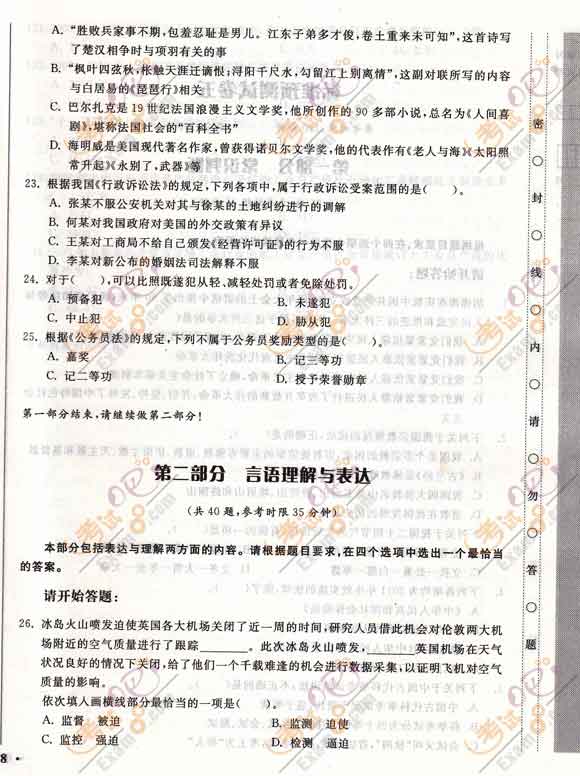 A. “胜败兵家事不期，包羞忍耻是男儿。江东子弟多才俊，卷土重来未可知”，这首诗写
了楚汉相争时与项羽有关的事
B. “枫叶四弦秋，枨触天涯迁谪恨；浔阳千尺水，勾留江上别离情”，这副对联所写的内容
与白居易的《琵琶行》相关
C. 巴尔扎克是19世纪法国浪漫主义文学奖，他所创作的90多部小说，总名为《人间喜
剧》，堪称法国社会的“百科全书”
D. 海明威是美国现代著名作家，曾获得诺贝尔文学奖，他的代表作有《老人与海》《太阳照
常升起》《永别了，武器》等
23. 根据我国《行政诉讼法》的规定，下列各项中，属于行政诉讼受案范围的是（　　）。
A. 张某不服公安机关对其与徐某的土地纠纷进行的调解
B. 何某对我国政府对美国的外交政策有异议
C. 王某对工商局不给自己颁发《经营许可证》的行为不服
D. 李某对新公布的婚姻法司法解释不服
24. 对于（　　），可以比照既遂犯从轻、减轻处罚或者免除处罚。
A. 预备犯　B. 未遂犯
C. 中止犯　D. 胁从犯
25. 根据《公务员法》的规定，下列不属于公务员奖励类型的是（　　）。
A. 嘉奖　B. 记三等功
C. 记二等功　D. 授予荣誉勋章
第一部分结束，请继续做第二部分！
第二部分　言语理解与表达
（共40题，参考时限35分钟）
本部分包括表达与理解两方面的内容。请根据题目要求，在四个选项中选出一个最恰当
的答案。
请开始答题：
26. 冰岛火山喷发迫使英国各大机场关闭了近一周的时间，研究人员借此机会对伦敦两大机
场附近的空气质量进行了跟踪______。此次冰岛火山喷发，______英国机场在天气
状况良好的情况下关闭，给了他们一个千载难逢的机会进行数据采集，以证明飞机对空气
质量的影响。
依次填入画横线部分最恰当的一项是（　　）。
A. 监督　被迫　B. 监测　迫使
C. 监控　强迫　D. 检测　逼迫
8
密○封○线○内○请○勿○答○题
考试OPE
Exam8.com